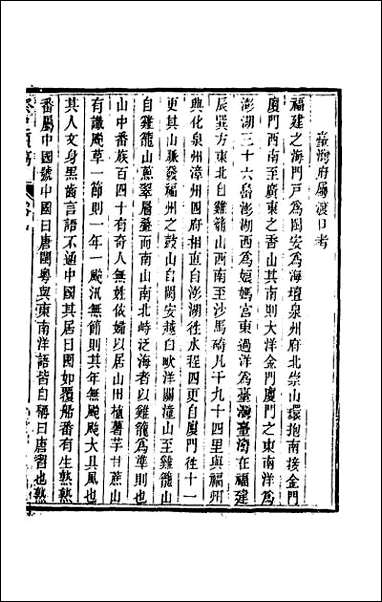 臺灣府屬渡口考
福建之海門戶為閩安為海壇泉州府北崇山環抱南接金門
廈門西南至廣東之香山其南則大洋金門廈門之東南洋為
澎湖三十六島澎湖西為娘媽宮東過洋為臺灣臺灣在福建
辰巽方東北自雞籠山西南至沙馬碕凡千九十四里與福州
興化泉州漳州四府相直自澎湖往水程四更自廈門往十一
更其山脈發福州之鼓山自閩安越白畎洋關潼山至雞籠山
自雞籠山矗翠層疊而南山南北峙泛海者以雞籠為準則也
山中番族百四十有奇人無姓依婦以居山用植薯芋甘蔗山
有讖颶草一節則一年一颶汛無節則其年無颶颶大具風也
其人文身黑齒言語不通中國其居曰囤如覆船番有生熟熟
番屬中國號中國曰唐閩粵與東南洋語皆自稱曰唐習也熟